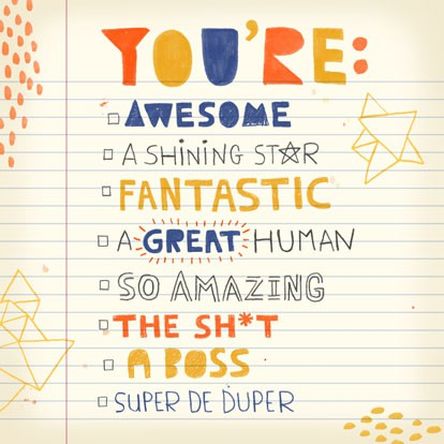 YOU'RE:
AWESOME
A SHiNiNG ST☆R
FANTASTIC
A GREAT HUMAN
SO AMAZING
THE SH*T
A BOSS
SUPER DE DUPER